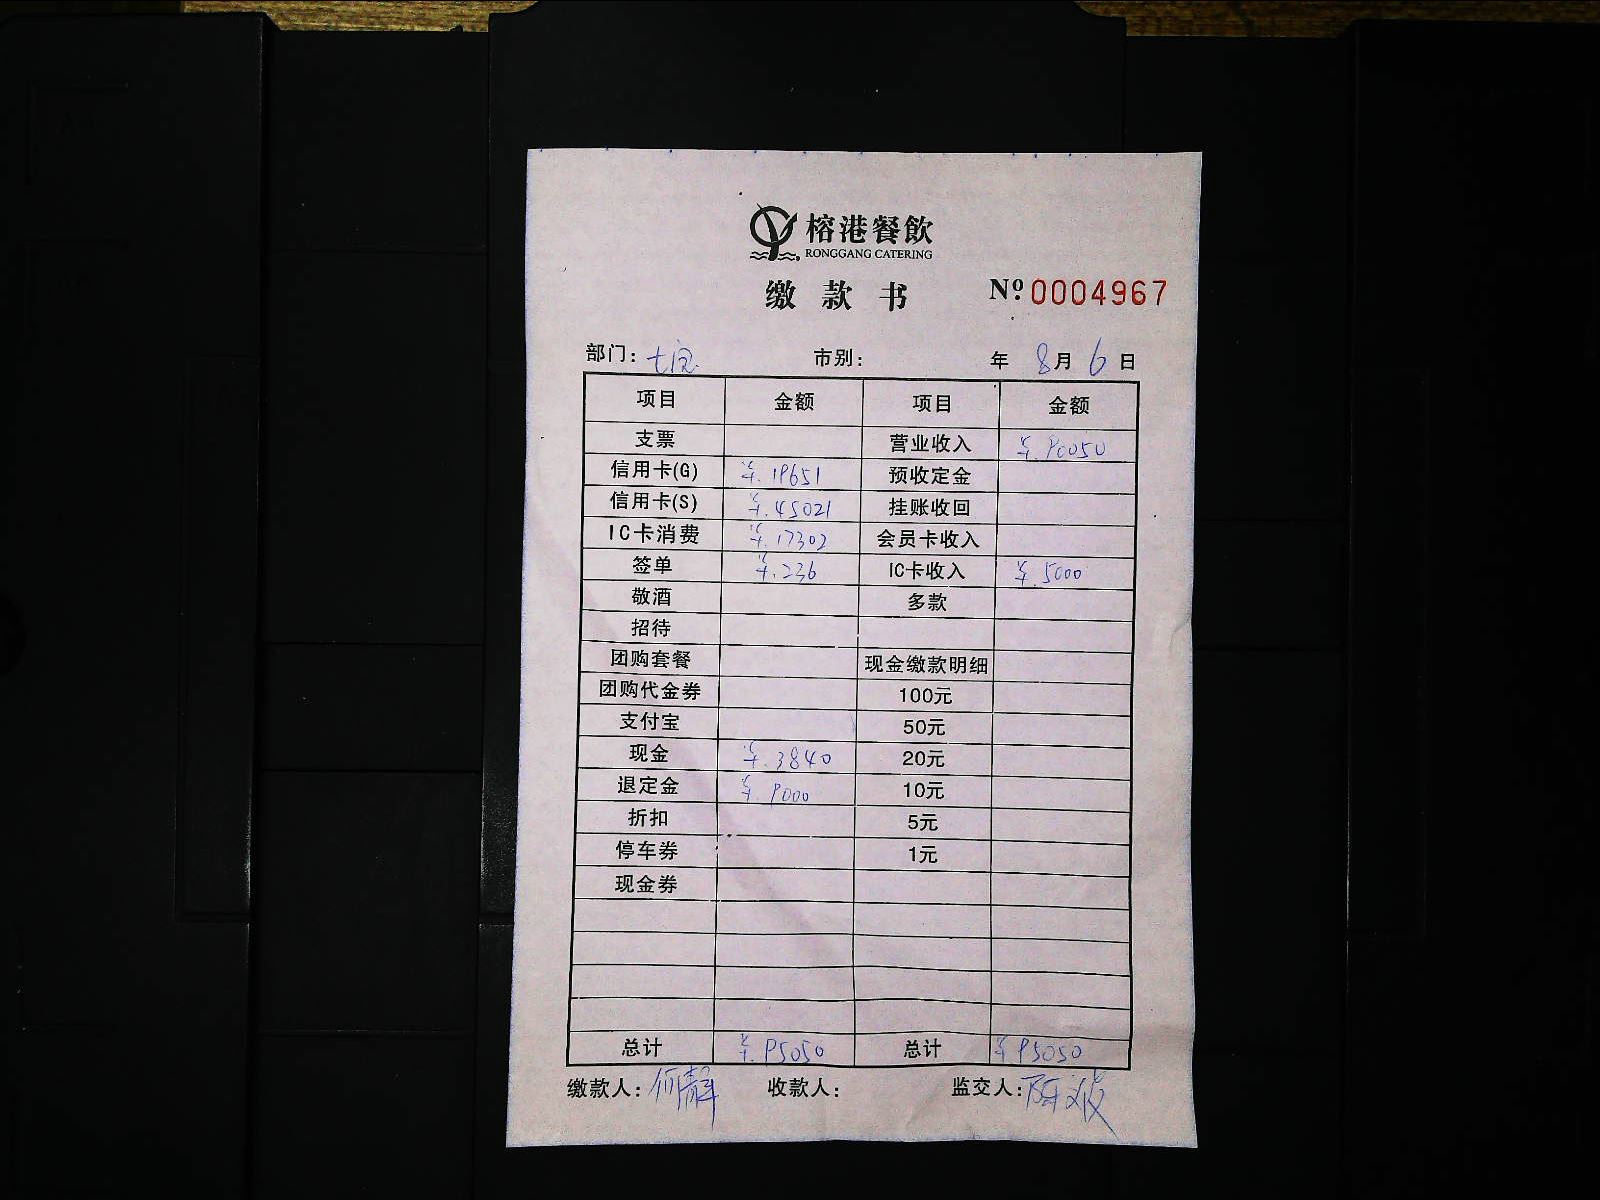 榕港餐飲
RONGGANG CATERING
缴款书 Nº 0004967
部门: 七宝 市别: 年 8月 6日
项目 金额 项目 金额
支票 营业收入 ¥.90050
信用卡(G) ¥.19651 预收定金
信用卡(S) ¥.45021 挂账收回
IC卡消费 ¥.17302 会员卡收入
签单 ¥.236 IC卡收入 ¥.5000
敬酒 多款
招待
团购套餐 现金缴款明细
团购代金券 100元
支付宝 50元
现金 ¥.3840 20元
退定金 ¥.9000 10元
折扣 5元
停车券 1元
现金券
总计 ¥.95050 总计 ¥95050
缴款人: 何静 收款人: 监交人: 陈